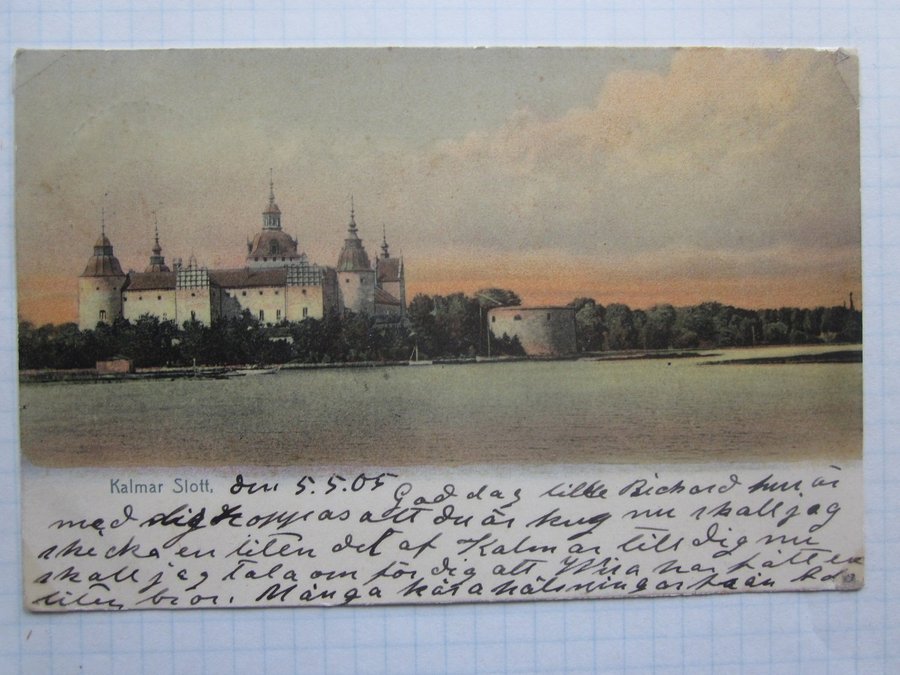 Kalmar Slott, den 5.5.05 God dag lille Richard hur är
med dig hoppas att du är kug nu skall jag
skicka en liten del af Kalmar till dig nu
skall jag tala om för dig att har fått en
liten bror. Många kära hälsningar från